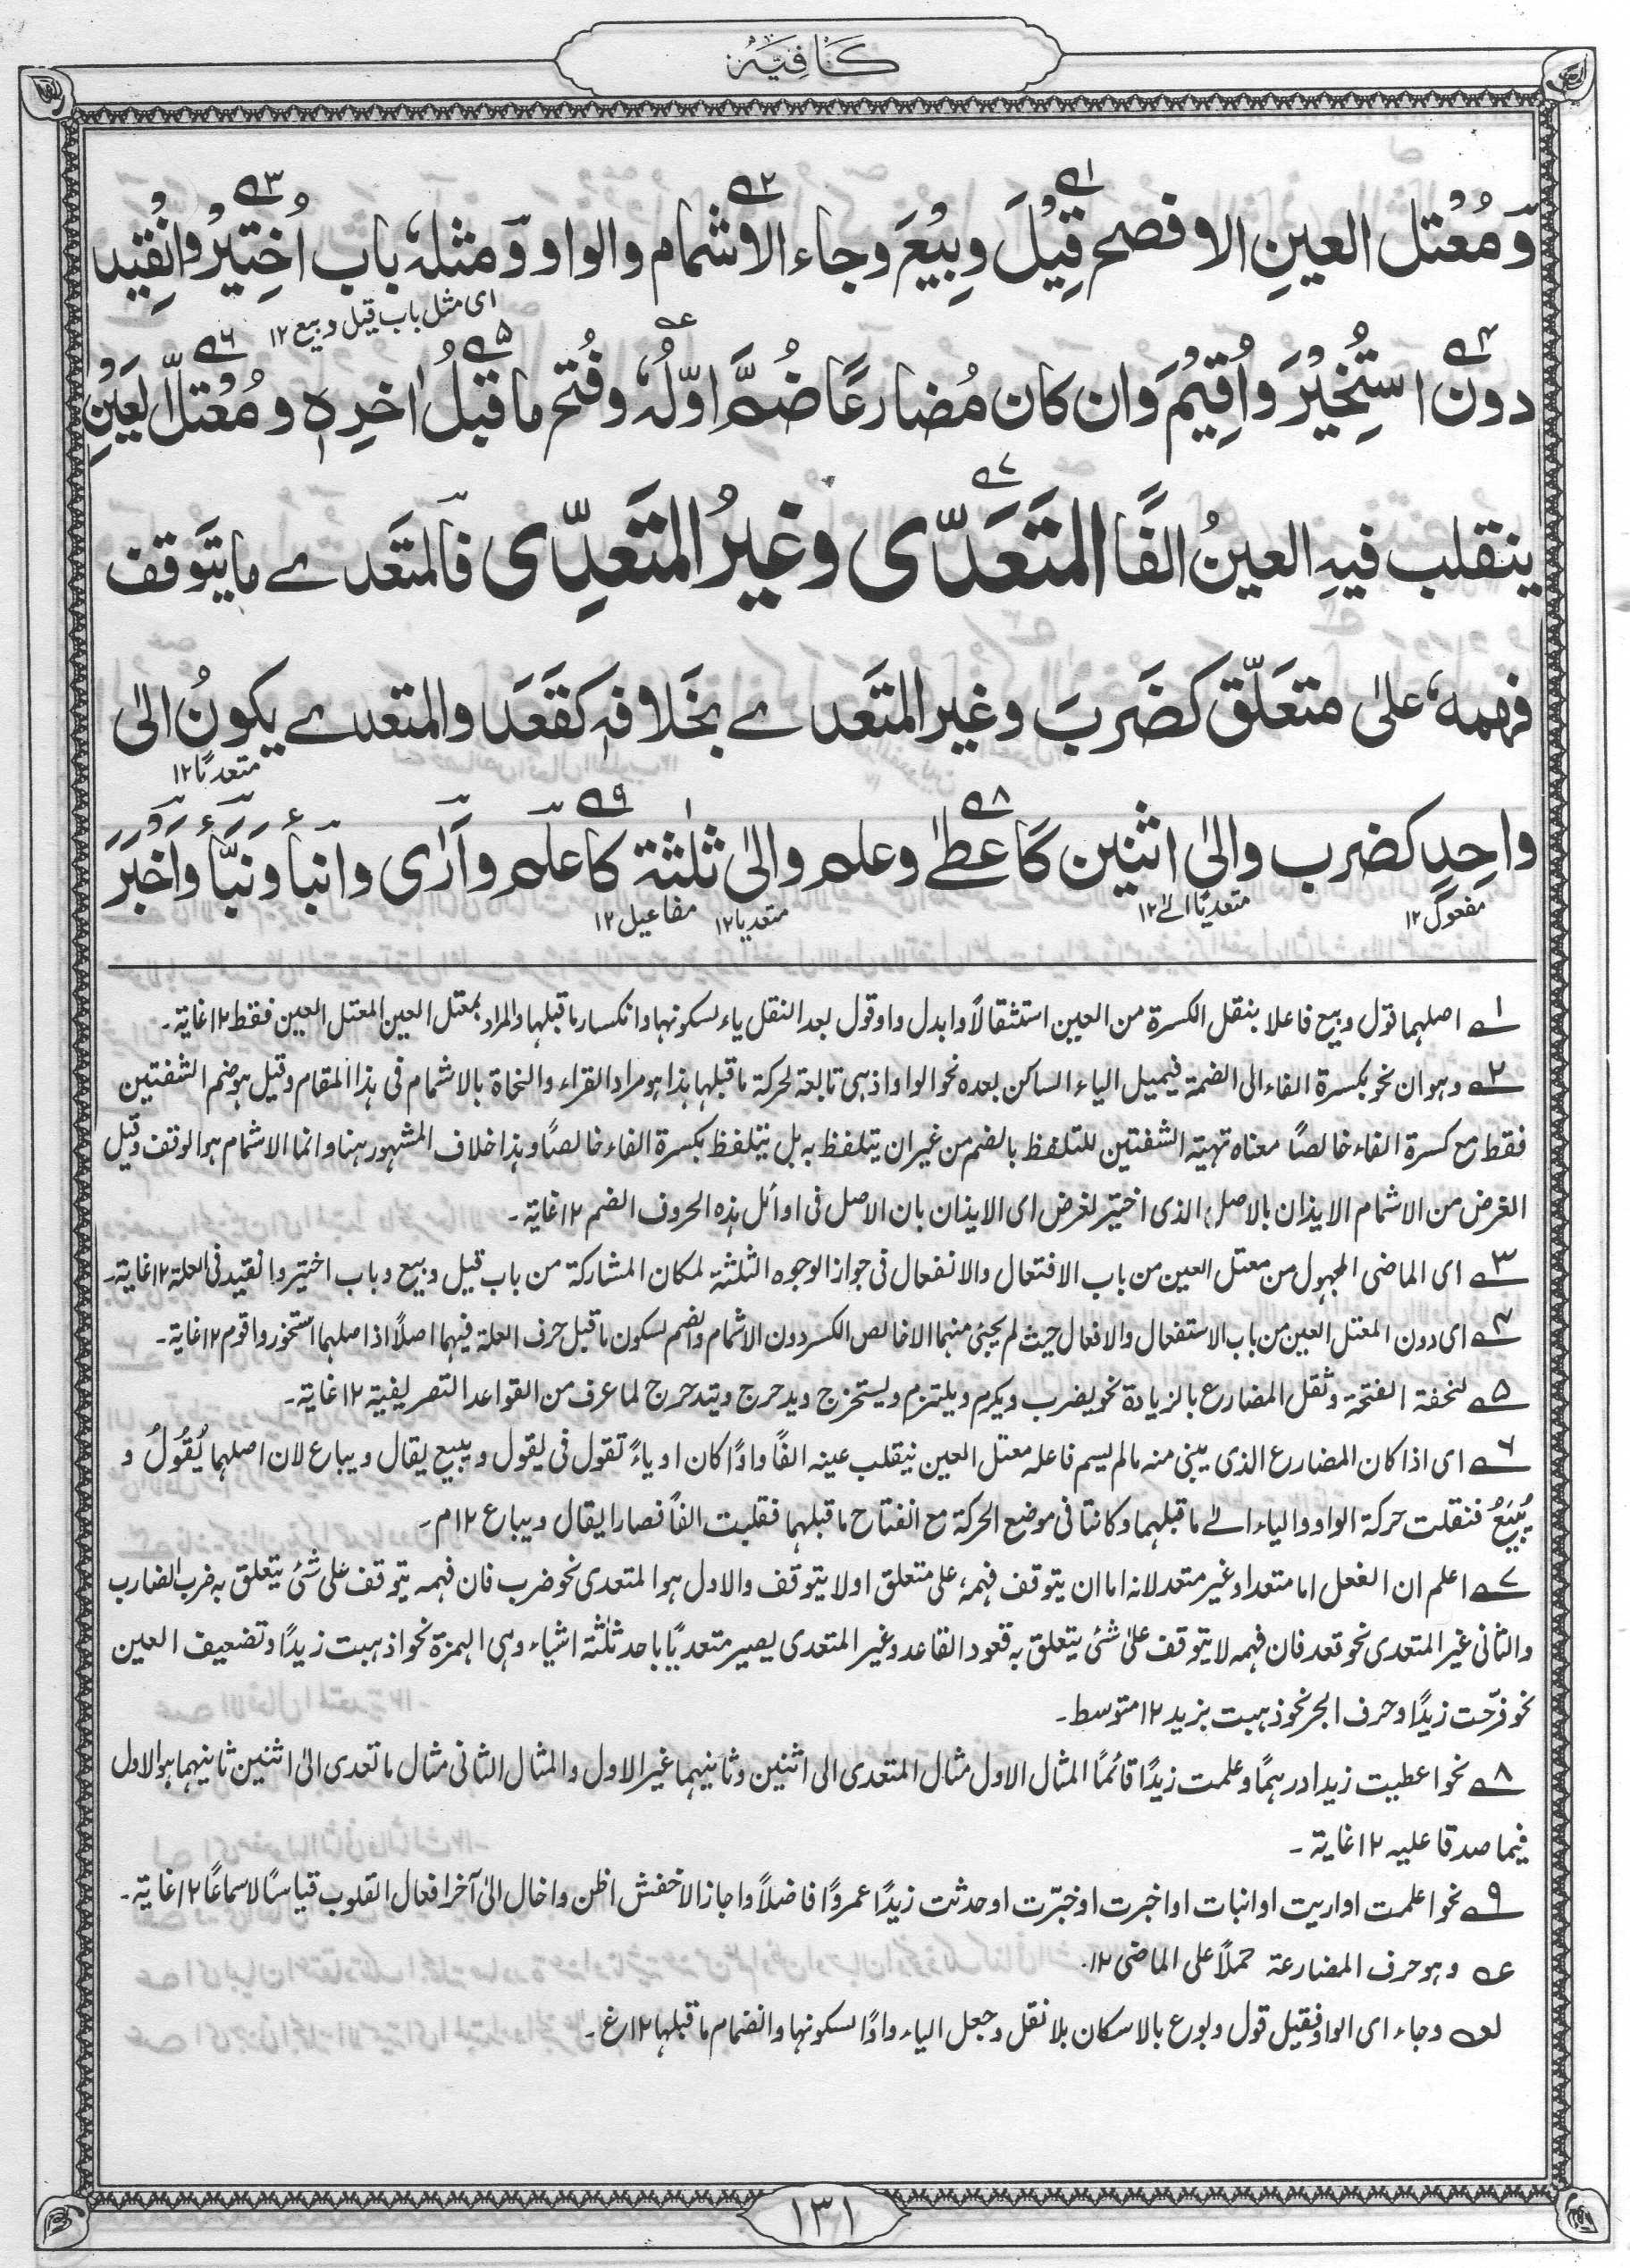 كَافِيَه
١ے ٢ے ٣ے
وَّمُعْتل العينِ الافصح قِيْلَ وبِيْعَ وجاء الاشمام والواو وَّمثلهٗ باب اُخْتِيْرُ وانْقِيْد
اى مثل باب قيل و بيع ١٢
٤ے عہ ٥ے ٦ے
دون اسْتُخِيْرَ واُقِيْمَ وان كان مُضارعًا ضُمَّ اوّلُهٗ وفُتح ما قبلُ اٰخرِهٖ ومُعْتلّ العَيْنِ
٧ے
ينقلب فيهِ العينُ الفًا المتَعَدّى وغيرُ المتَعدِّى فالمتَعَدے مايتَوقف
فهمهٗ علىٰ متعَلّق كضَربَ وغير المتَعدے بخَلافهٖ كَقَعَدَ والمتعدے يكونُ الىٰ
متعديًا ١٢
٨ے ٩ے
واحِدٍ كضرب والىٰ اثنين كَاعطےٰ وعلم والىٰ ثلٰثة كاعلم وآرٰى وانبأ ونَبَّأ واَخْبَرَ
مفعول ١٢ متعديًا الےٰ ١٢ متعديا ١٢ مفاعيل ١٢
١ے اصلهما قول وبيع فاعلا بنقل الكسرة من العين استثقالاً وابدل واو قول بعد النقل ياء لسكونها وانكسار ما قبلها والمراد بمعتل العين المعتل العين فقط ١٢ غاية۔
٢ے وهو ان نحو بكسرة الفاء الى الضمة فيميل الياء الساكن بعده نحو الواو اذ هى تابعة لحركة ما قبلها هذا هو مراد القراء والنحاة بالاشمام فى هذا المقام وقيل هو ضم الشفتين
فقط مع كسرة الفاء خالصًا معناه تهيئة الشفتين للتلفظ بالضم من غير ان يتلفظ به بل يتلفظ بكسرة الفاء خالصًا وهذا خلاف المشهور هنا وانما الاشمام هو الوقف وقيل
الغرض من الاشمام الايذان بالاصل؛ الذى اختير لغرض اى الايذان بان الاصل فى اوائل هذه الحروف الضم ١٢ غاية۔
٣ے اى الماضى المجهول من معتل العين من باب الافتعال والانفعال فى جواز الوجوه الثلثة لمكان المشاركة من باب قيل وبيع وباب اختير وانقيد فى العلة ١٢ غاية۔
٤ے اى دون المعتل العين من باب الاستفعال والافعال حيث لم يجئ منهما الا خالص الكسر دون الاشمام والضم لسكون ما قبل حرف العلة فيهما اصلاً اذ اصلهما استخور واقوم ١٢ غاية۔
٥ے لخفة الفتحة وثقل المضارع بالزيادة نحو يضرب ويكرم ويلتزم ويستخرج ويدحرج ويتدحرج لما عرف من القواعد التصريفية ١٢ غاية۔
٦ے اى اذا كان المضارع الذى يبنى منه مالم يسم فاعله معتل العين ينقلب عينه الفًا واوًا كان او ياءً تقول فى يقول ويبيع يقال ويباع لان اصلهما يُقْوَلُ و
يُبْيَعُ فنقلت حركة الواو والياء الےٰ ما قبلهما وكانتا فى موضع الحركة مع انفتاح ما قبلهما فقلبت الفًا فصارا يقال ويباع ١٢م۔
٧ے اعلم ان الفعل اما متعد او غير متعد لانه اما ان يتوقف فهمه على متعلق او لا يتوقف والاول هو المتعدى نحو ضرب فان فهمه يتوقف على شئ يتعلق به ضرب الضارب
والثانى غير المتعدى نحو قعد فان فهمه لا يتوقف علىٰ شئ يتعلق به قعود القاعد وغير المتعدى يصير متعديًا باحد ثلٰثة اشياء وهى الهمزة نحو اذهبت زيدًا وتضعيف العين
نحو فرّحت زيدًا وحرف الجر نحو ذهبت بزيد ١٢ متوسط۔
٨ے نحو اعطيت زيدا درهمًا وعلمت زيدًا قائمًا المثال الاول مثال المتعدى الى اثنين وثانيهما غير الاول والمثال الثانى مثال ما تعدى الىٰ اثنين ثانيهما هو الاول
فيما صدقا عليه ١٢ غاية۔
٩ے نحو اعلمت او اريت او انبات او اخبرت او خبّرت او حدثت زيدًا عمروًا فاضلاً واجاز الاخفش اظن واخال الىٰ آخر افعال القلوب قياسًا لا سماعًا ١٢ غاية۔
عہ وهو حرف المضارعة حملاً على الماضى ١٢.
لہ وجاء اى الواو فقيل قول وبوع بالاسكان بلا نقل وجعل الياء واوًا لسكونها وانضمام ما قبلها ١٢غ۔
١٣١